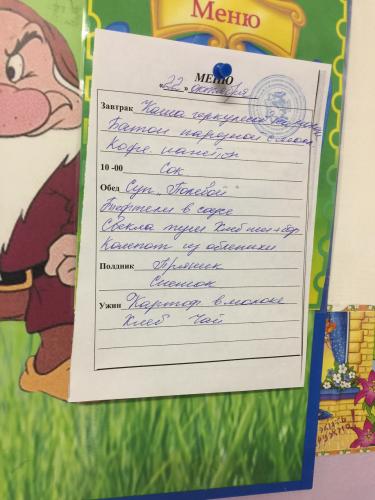 Меню
МЕНЮ
«22» октября
Завтрак Каша геркулесов
Батон народной с маслом
Кофе напиток
10 -00 Сок
Обед Суп "Полевой"
Тефтели в соусе
Свекла туш Хлеб пш+бор
Компот из облепихи
Полдник Пряник
Снежок
Ужин Картоф в молоке
Хлеб Чай